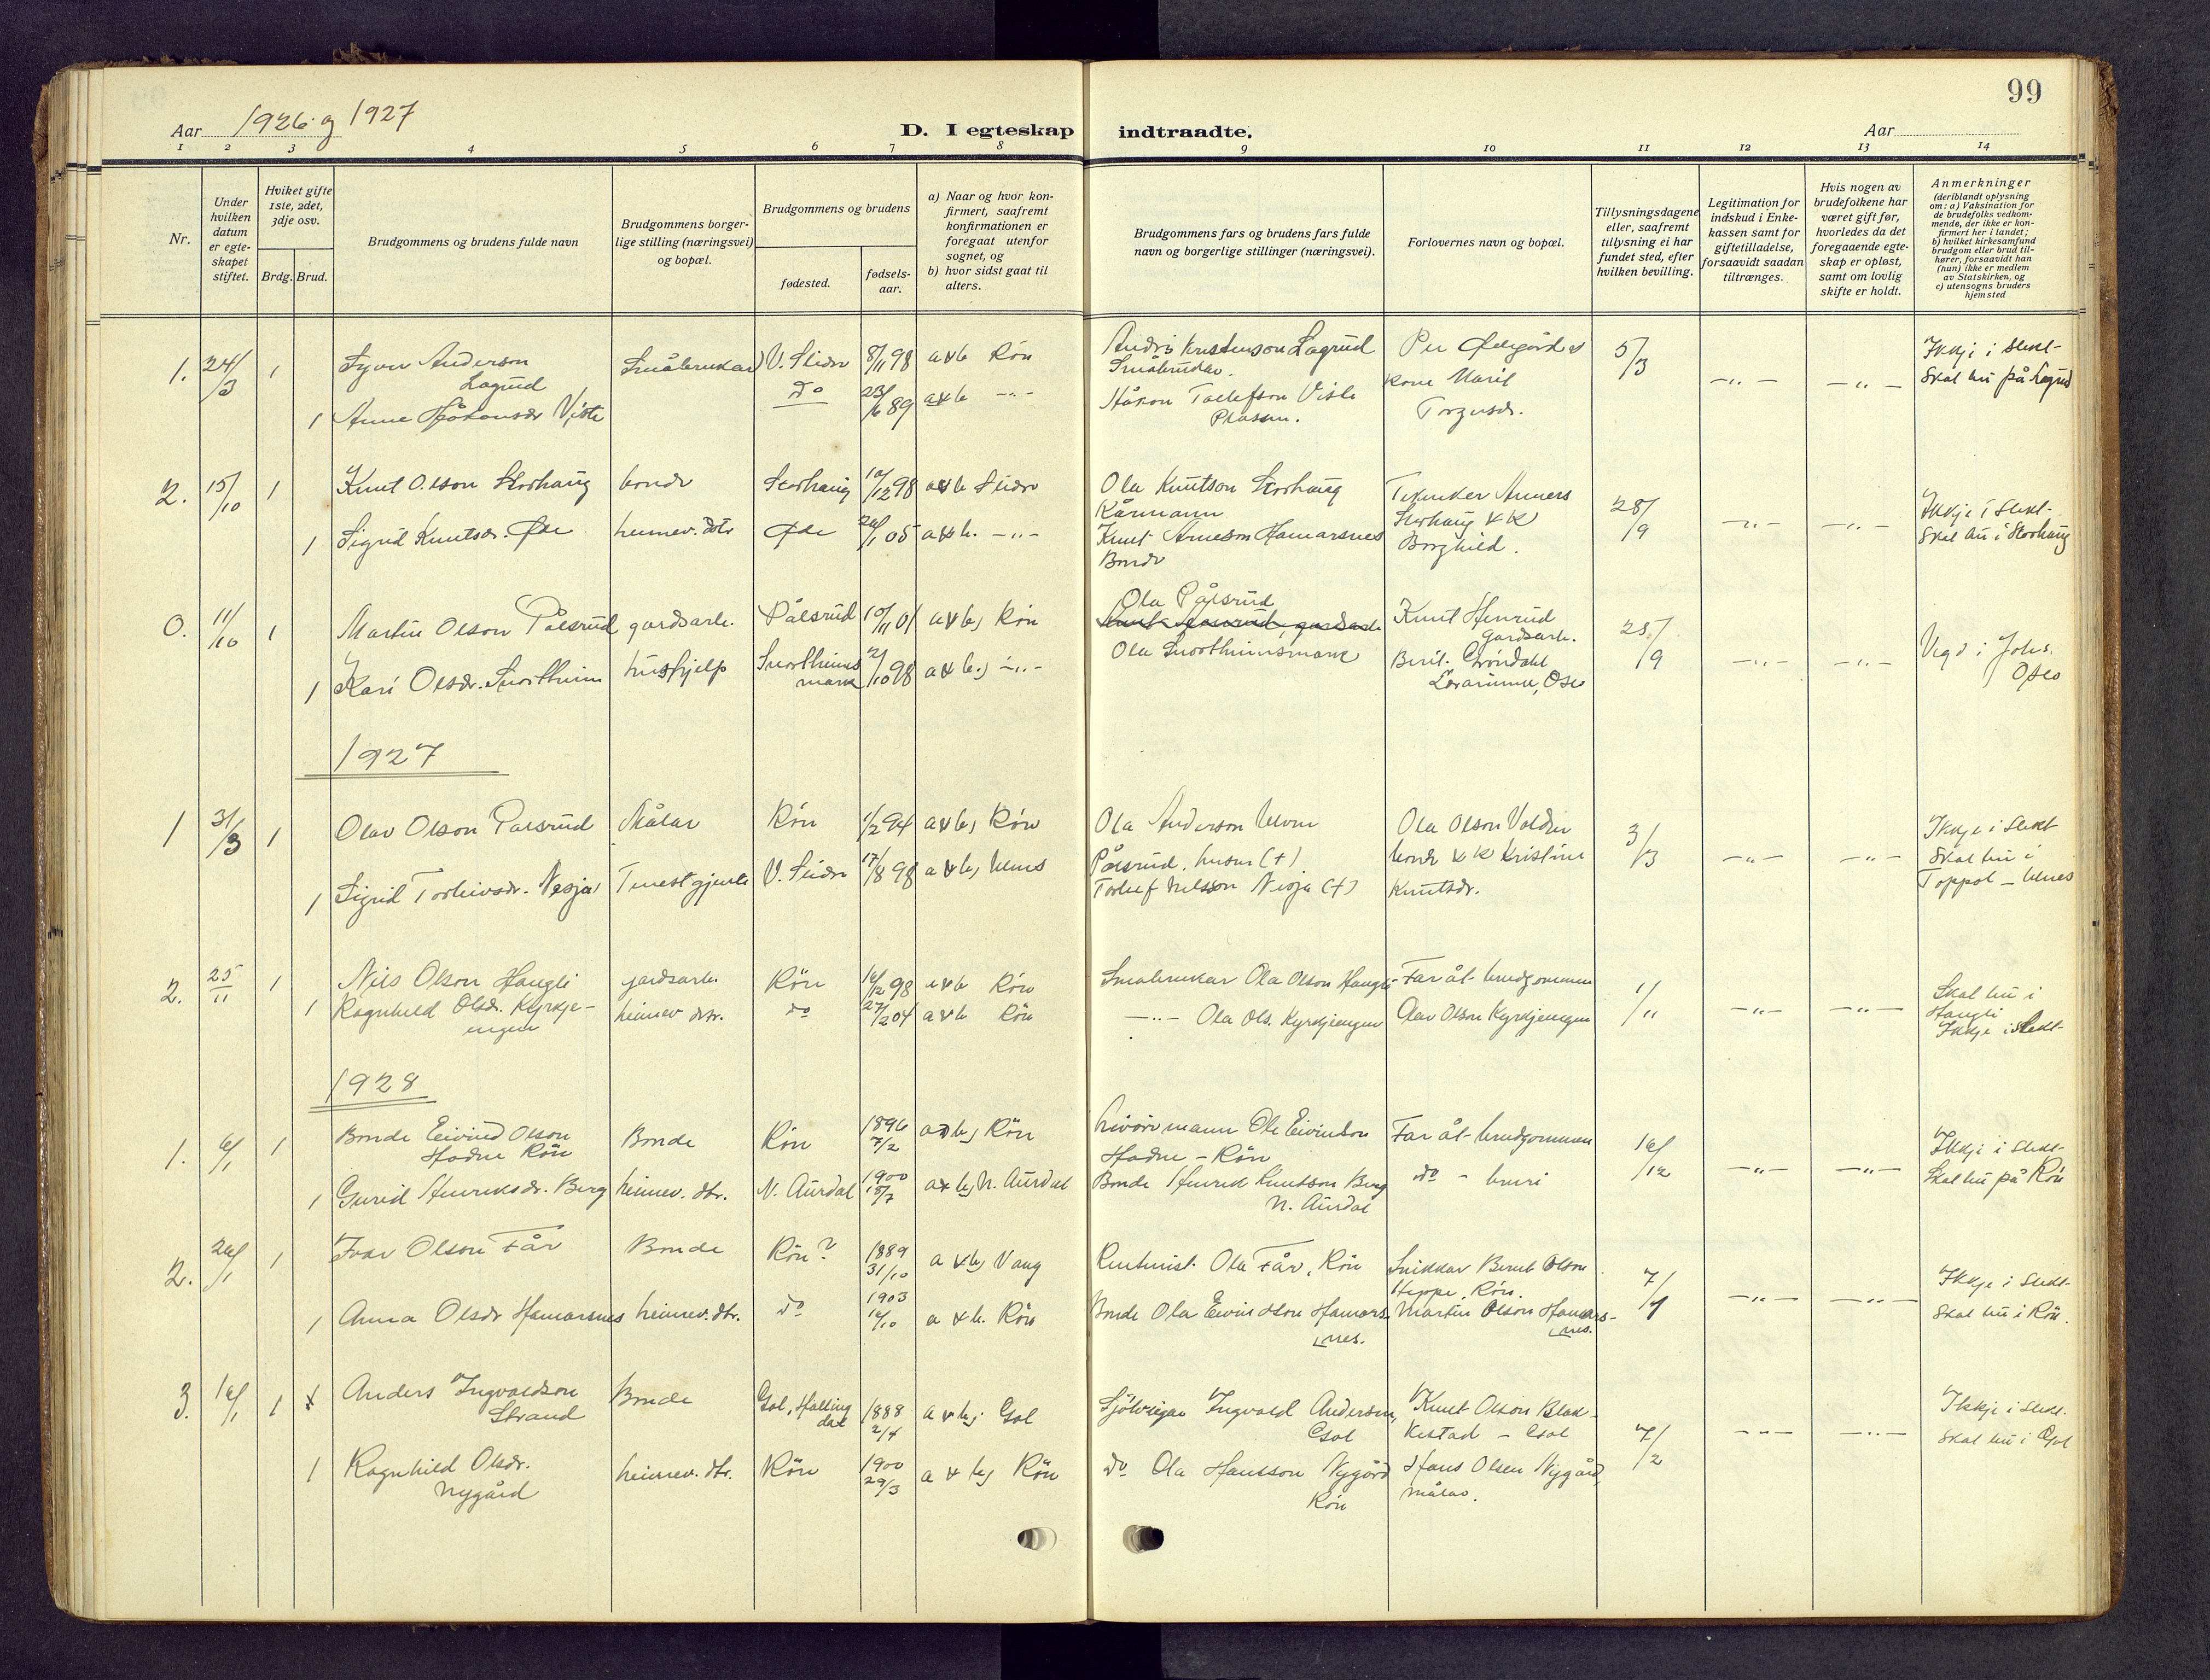 99
Aar 1926 og 1927
D. I egteskap indtraadte.
Aar
1 2 3 4 5 6 7 8 9 10 11 12 13 14
Nr.
Under hvilken datum er egteskapet stiftet.
Hviket gifte 1ste, 2det, 3dje osv.
Brdg. Brud.
Brudgommens og brudens fulde navn
Brudgommens borgerlige stilling (næringsvei) og bopæl.
Brudgommens og brudens
fødested.
fødselsaar.
a) Naar og hvor konfirmert, saafremt konfirmationen er foregaat utenfor sognet, og
b) hvor sidst gaat til alters.
Brudgommens fars og brudens fars fulde navn og borgerlige stillinger (næringsvei).
Forlovernes navn og bopæl.
Tillysningsdagene eller, saafremt tillysning ei har fundet sted, efter hvilken bevilling.
Legitimation for indskud i Enkekassen samt for giftetilladelse, forsaavidt saadan tiltrænges.
Hvis nogen av brudefolkene har været gift før, hvorledes da det foregaaende egteskap er opløst, samt om lovlig skifte er holdt.
Anmerkninger (deriblandt oplysning om: a) Vaksination for de brudefolks vedkommende, der ikke er konfirmert her i landet; b) hvilket kirkesamfund brudgom eller brud tilhører, forsaavidt han (hun) ikke er medlem av Statskirken, og c) utensogns bruders hjemsted
1. 24/3 1 Syver Anderson Lagrud Småbrukar V. Slidre 8/11 98 a & b Røn
Småbrukar. 5/3 -"- -"- Ikkje i slekt- Skal bu på Lagrud
1 Anne Håkonsdr Viste do 23/6 89 a & b -"-
kone Marit Torgersdr.
2. 15/10 1 Knut Olson Storhaug bonde Storhaug 10/12 98 a & b Slidre
Ola Knutson Storhaug Kårmann
Storhaug & k Borghild. 28/9 -"- -"- Ikkje i slekt- Skal bu i Storhaug
1 Sigrid Knutsdr. Øde heimev. dtr Øde 26/1 05 a & b. -"-
Knut Arneson Hamarsnes Bonde
0. 11/10 1 Martin Olson Pålsrud gardsarb. Pålsrud 10/11 01 a & b, Røn
Ola Pålsrud
Knut Henrud gardsarb. 25/9 -"- -"- Oslo
1 Kari Olsdr. Snortheim hushjelp Snortheimsmark 2/10 98 a & b, -"-
Ola Snortheimsmark
1927
1 31/3 1 Olav Olson Pålsrud Målar Røn 1/2 94 a & b, Røn
Ola Anderson Ulvne Pålsrud. husm (+)
Ola Olson Volden bonde & k Kristine Knutsdr. 3/3 -"- -"- Ikkje i slekt Skal bu i Toppol - Ulnes
1 Sigrid Torleivsdr. Nesja Tenestgjente V. Slidre 17/8 98 a & b, Ulnes
Torleif Nilsson Nesja (+)
2. 25/11 1 Nils Olson Haugli gardsarb. Røn 16/12 98 a & b Røn
Småbrukar Ola Olson Haugli Far åt brudgommen 1/11 -"- -"- Skal bu i Haugli Ikkje i slekt-
1 Ragnhild Olsdr. Kyrkjeengen heimev dtr. do 27/2 04 a & b Røn
-"- Ola Ols. Kyrkjeengen Olav Olson Kyrkjeengen
1928
1. 6/1 1 Bonde Eivind Olson Hadne Røn Bonde Røn 1896 7/2 a & b, Røn
Ole Eivindson Hadne - Røn Far åt brudgommen 16/12 -"- -"- Ikkje i slekt- Skal bu på Røn
1 Gurid Henriksdr. Berg heimev. dtr. N. Aurdal 1900 15/7 a & b, N. Aurdal
Bonde Henrik Knutson Berg N. Aurdal do - bruri
2. 26/1 1 Ivar Olson Får Bonde Røn? 1889 31/10 a & b, Vang
Rentenist Ola Får, Røn Snikkar Bernt Olson Heppe, Røn. 7/1 -"- -"- Ikkje i slekt- Skal bu i Røn.
1 Anna Olsdr Hamarsnes heimev. dtr. do 1903 16/10 a & b. Røn
Bonde Ola Eivindson Hamarsnes. Martin Olson Hamarsnes.
3. 16/1 1 Anders Ingvaldson Strand Bonde Gol, Hallingdal 1888 2/4 a & b, Gol
Sjøleigar Ingvald Anderson, Gol Knut Olson Blakkestad - Gol 7/2 -"- -"- Ikkje i slekt. Skal bu i Gol
1 Ragnhild Olsdr. Nygård heimev. dtr. Røn 1900 29/3 a & b, Røn
do Ola Hansson Nygård Røn Hans Olsen Nygård, målar.